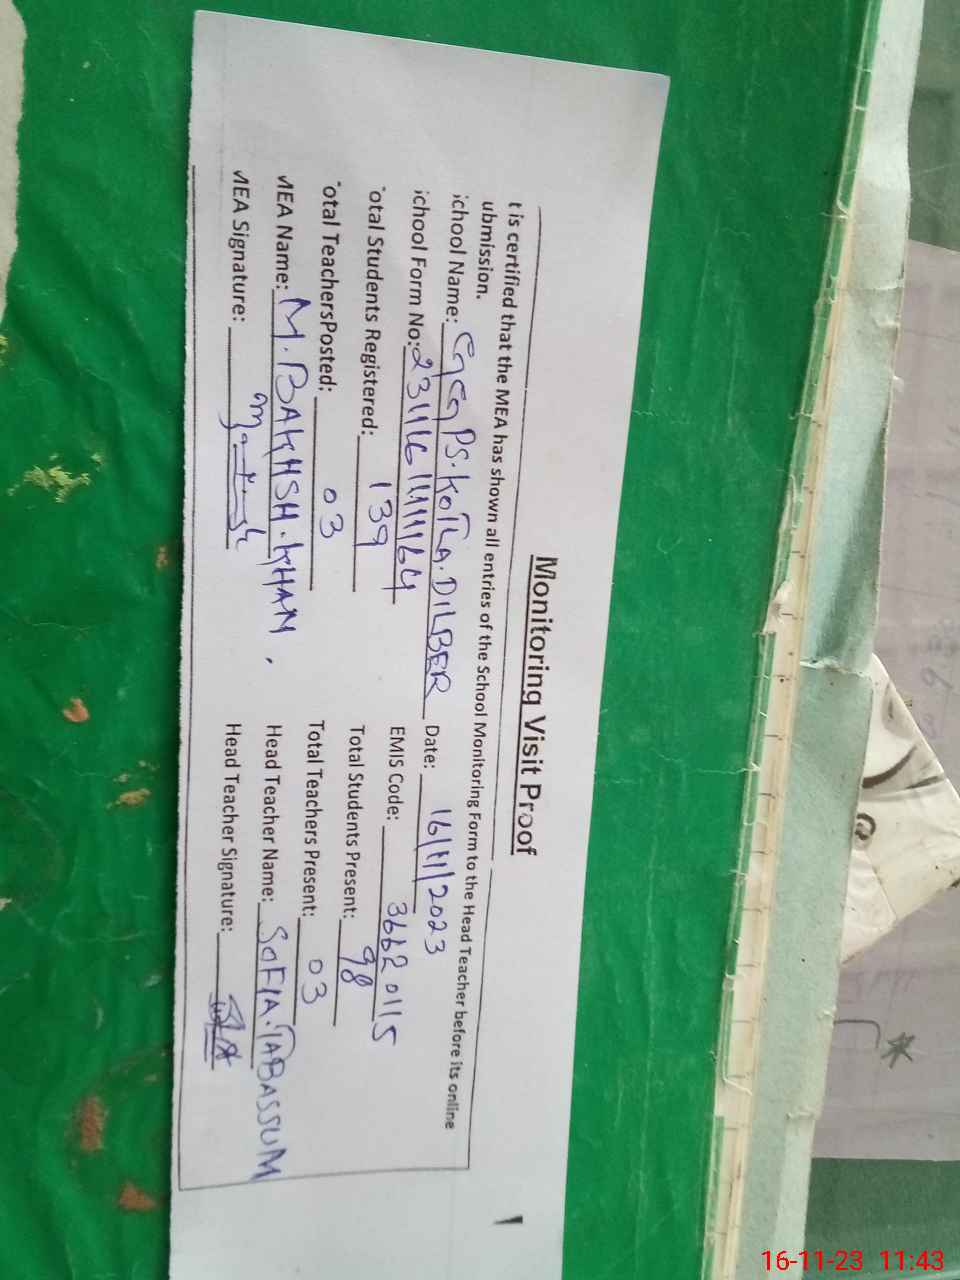 Monitoring Visit Proof
t is certified that the MEA has shown all entries of the School Monitoring Form to the Head Teacher before its online
ubmission.
ichool Name: GGPS. KOTLA. DILBER Date: 16/11/2023
ichool Form No: EMIS Code: 36620115
otal Students Registered: 139 Total Students Present: 98
otal TeachersPosted: 03 Total Teachers Present: 03
MEA Name: M. BAKHSH. KHAM. Head Teacher Name: SOFIA. TABASSUM
MEA Signature: Head Teacher Signature:
16-11-23 11:43